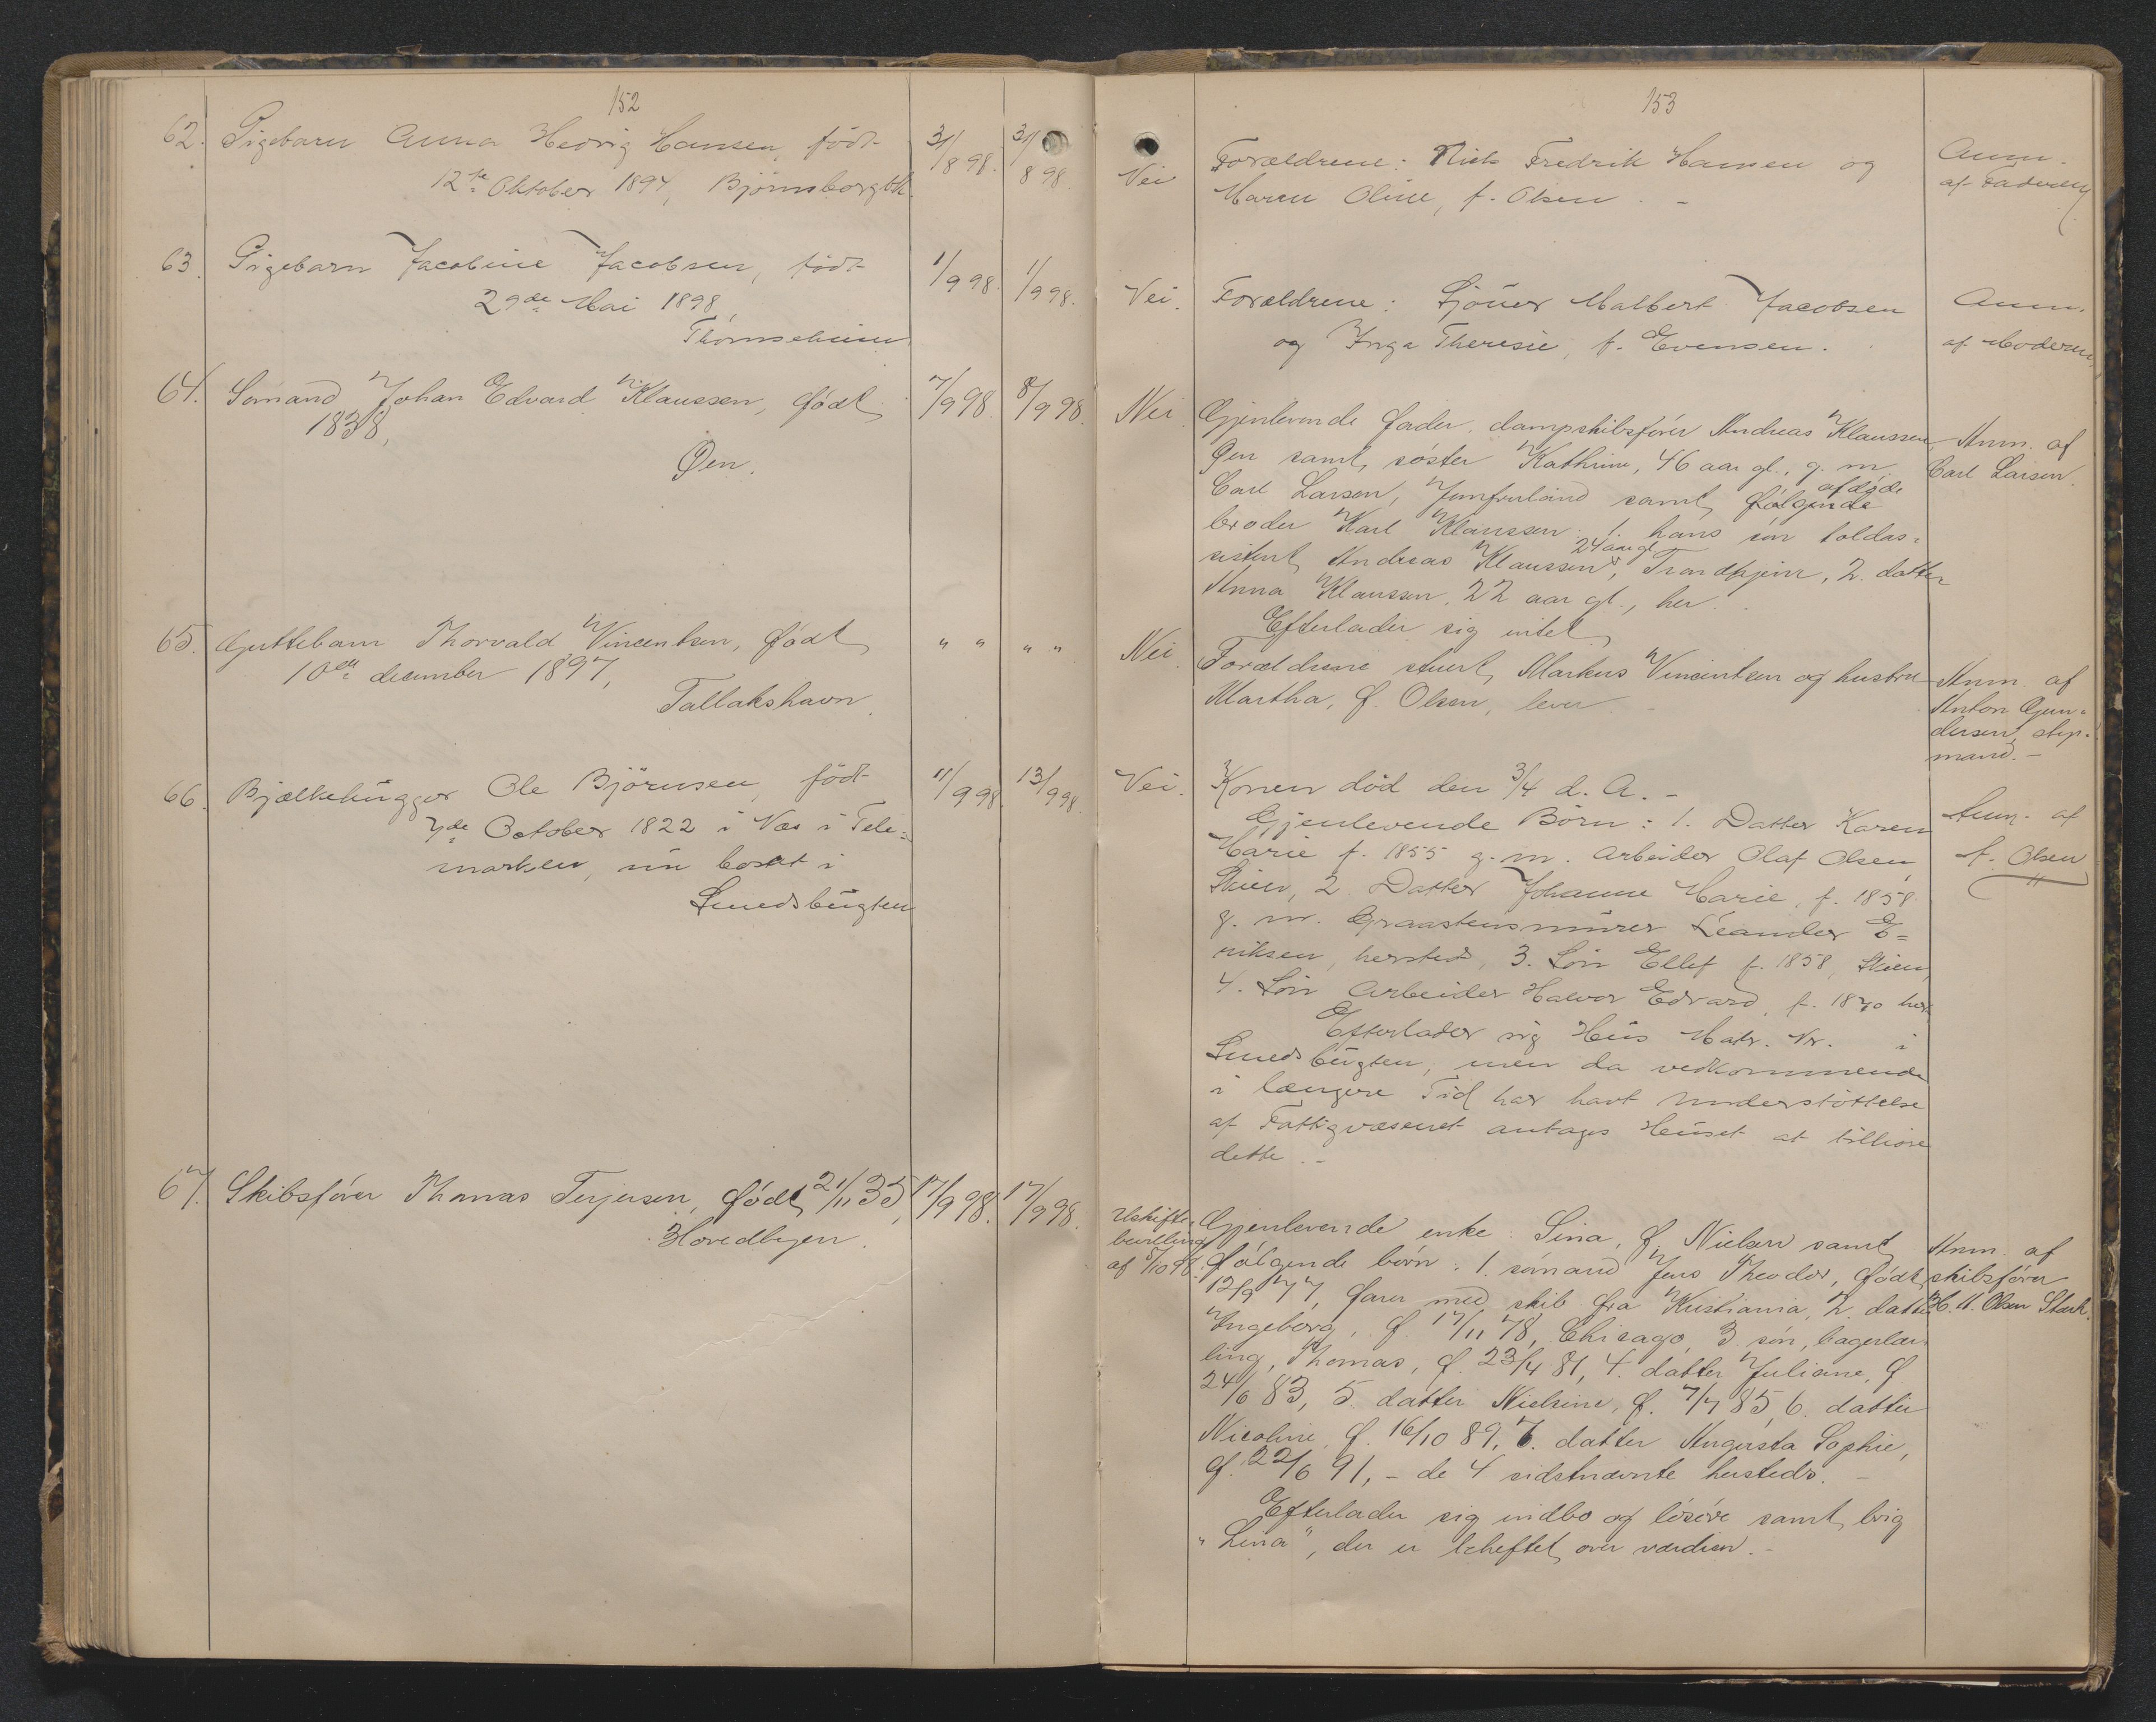 152
62. Pigebarn Anna Hedvig Hansen, født 31/8 98. 31/8 98
12te Oktober 1897, Bjørnsborgbk.
63. Pigebarn Jacobine Jacobsen, født 1/9 98. 1/9 98.
29de Mai 1898,
64. Sømand Johan Edvard Klaussen, født 7/9 98. 8/9 98.
1838,
Øen.
65. Guttebarn Thorvald Vincentsen, født " " " "
10de december 1897,
Tallakshavn.
66. Bjælkehugger Ole Björnsen, född 11/9 98 13/9 98.
7de October 1822 i Næs i Tele-
marken, nu bosat i
Smedsbugten
67. Skibsfører Thomas Terjesen, født 21/11 35, 17/9 98. 17/9 98.
Hovedbyen.
153
Nei Forældrene: Niels Fredrik Hansen og Anm.
Maren Oline, f. Olsen. - af Faderen
Nei. Forældrene: Sjöuer Malbert Jacobsen Anm.
og Inga Theresie, f. Evensen. af Moderen
Nei. Gjenlevende fader, dampskibsfører Andreas Klaussen, Anm. af
Øen samt søster Kathrine, 46 aar gl., g. m. Carl Larsen.
Carl Larsen, Jomfruland samt følgende afdøde
broder Karl Klaussen: 1. hans søn toldas-
sistent Andreas Klaussen, 24 aar gl., Trondhjem, 2. datter
Anna Klaussen, 22 aar gl., her.
Efterlader sig intet
Nei. Forældrene stuert Markus Vincentsen og hustru Anm. af
Martha, f. Olsen, lever. Anton Gun-
dersen, skip-
mand. -
Nei. Konen död den 3/4 d. A. -
Gjenlevende Börn: 1. Datter Karen Anm. af
Marie f. 1855 g. m. Arbeider Olaf Olsen, f. Olsen
Skien, 2. Datter Johanne Marie, f. 1858
g. m. Graastensmürer Leander E-
riksen, hersteds, 3. Sön Ellef f. 1858, Skien,
4. Sön Arbeider Halvor Edvard, f. 1870 her.
Efterlader sig Hüs Matr. Nr. i
Smedsbügten, men da vedkommende
i længere Tid har havt Understöttelse
af Fattigvæsenet antages Hüset at tilhøre
dette. -
Uskifte- Gjenlevende enke: Sina, f. Nielsen samt Anm. af
bevilling følgende børn: 1. sømand Jens Theodor, født skibsfører
af 5/10 98. 12/9 77, farer med skib fra Kristiania, 2. datter H. A. Olsen Stack.
Ingeborg, f. 17/11 78, Chicago, 3. søn, bagerlær-
ling, Thomas, f. 23/4 81, 4. datter Juliane, f.
24/6 83, 5. datter Nielsine, f. 7/7 85, 6. datter
Nicoline, f. 16/10 89, 7. datter Augusta Sophie,
f. 22/6 91, - de 4 sidstnævnte hersteds. -
Efterlader sig indbo og løsøre samt brig
"Lina", der er beheftet over værdien. -